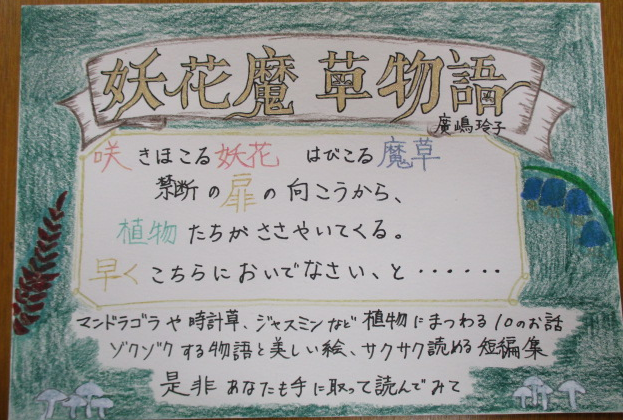 妖花魔草物語
廣嶋玲子
咲きほこる妖花 はびこる魔草
禁断の扉の向こうから、
植物たちがささやいてくる。
早くこちらにおいでなさい、と‥‥‥
マンドラゴラや時計草、ジャスミンなど植物にまつわる10のお話
ゾクゾクする物語と美しい絵、サクサク読める短編集
是非あなたも手に取って読んでみて